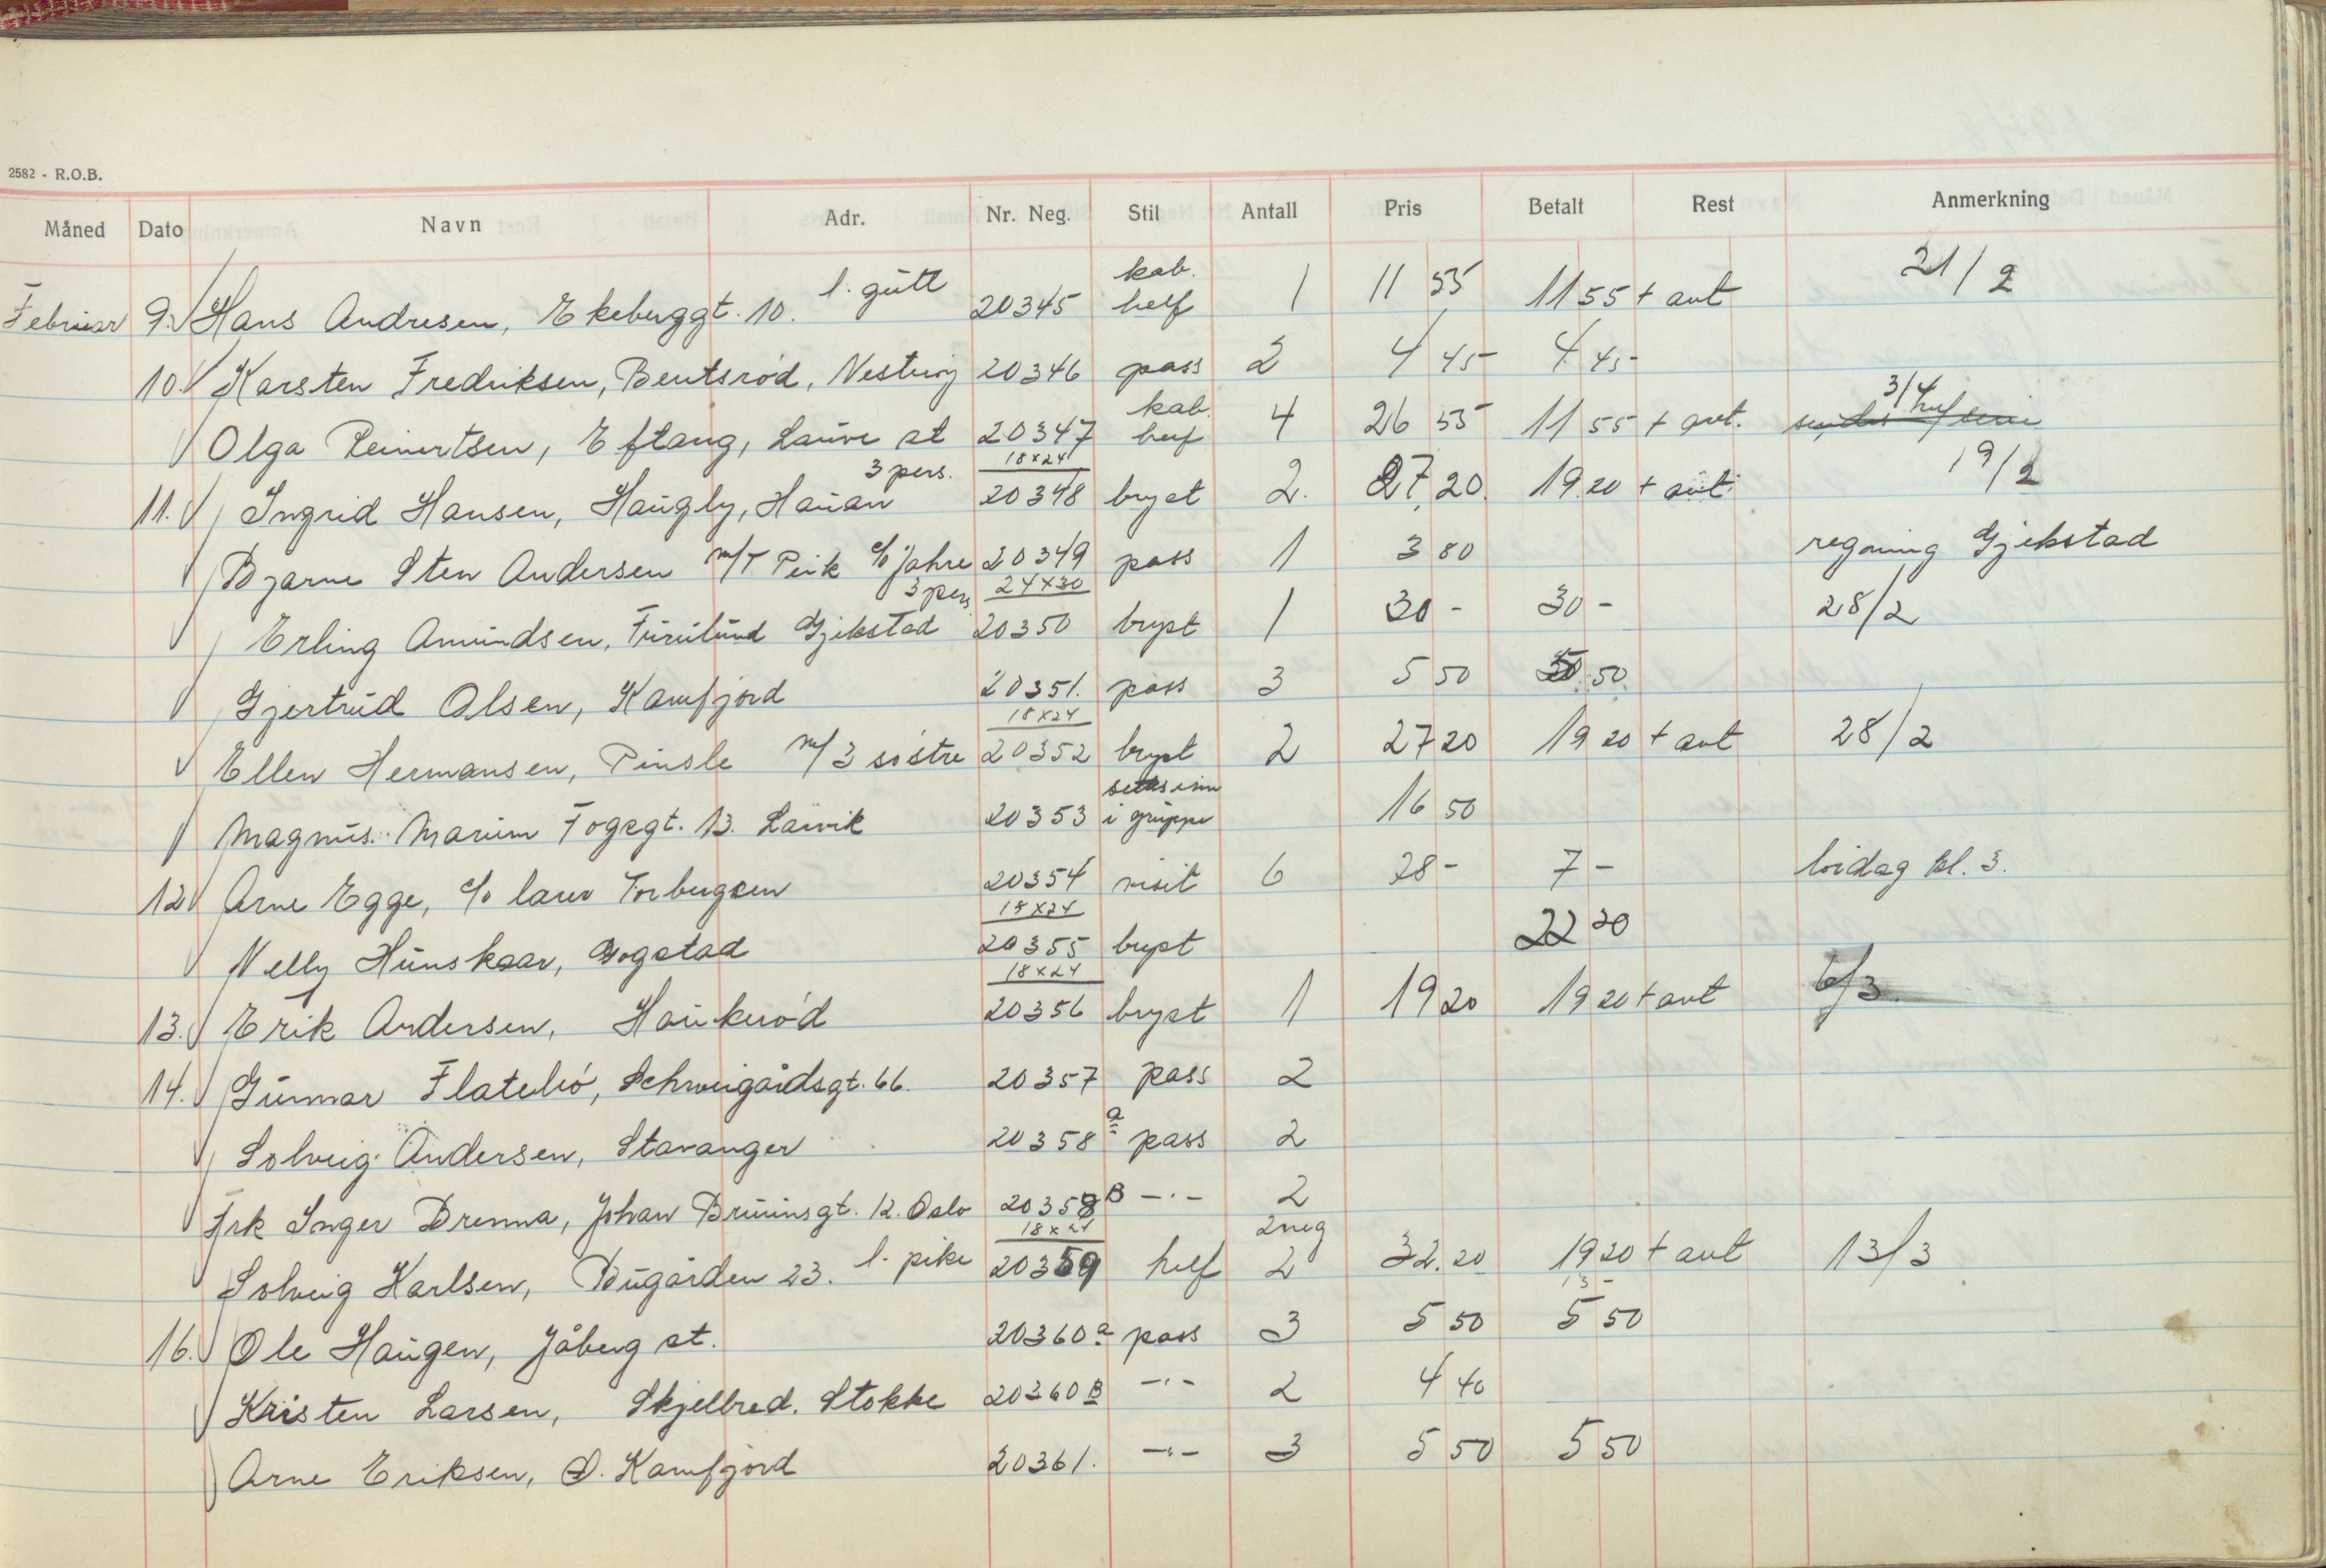 2582 - R.O.B.
Måned Dato Navn Adr. Nr. Neg. Stil Antall Pris Betalt Rest Anmerkning
Februar 9. Hans Andresen, Ekeberggt. 10. l. gutt 20345 kab. helf 1 11 55 11 55 + avt 21/2
10. Karsten Fredriksen, Bentsrød, Nesterøy 20346 pass 2 4 45 4 45
Olga Reinertsen, Eftang, Lauve st 20347 kab. helf 4 26 55 11 55 + avt. 3/4
11. Ingrid Hansen, Haugly, Hauan 3 pers. 18x24 20348 bryst 2. 27,20. 19 20 + avt. 19/2
Bjarne Sten Andersen m/T Peik c/o Jahre 20349 pass 1 3 80 regning Gjekstad
Erling Amundsen, Furulund Gjekstad 3 pers. 24x30 20350 bryst 1 30 - 30 - 28/2
Gjertrud Olsen, Kamfjord 20351. pass 3 5 50 5 50
Ellen Hermansen, Pinsle m/3 søstre 18x24 20352 bryst 2 27 20 19 20 + avt 28/2
Magnus Marum Fogegt. 13. Larvik 20353 settes inn i gruppe 16 50
12 Arne Egge, c/o Torbergsen 20354 visit 6 28 - 7 - lørdag kl. 3.
Nelly Hunskaar, Gogstad 18x24 20355 bryst 22 20
13. Erik Andersen, Haukerød 18x24 20356 bryst 1 19 20 19 20 + avt 6/3.
14. Gunnar Flatebø, Schweigårdsgt. 66. 20357 pass 2
Solveig Andersen, Stavanger 20358 a pass 2
Frk Inger Drenna, Johan Bruunsgt. 12. Oslo 20358 B -"- 2
Solveig Karlsen, Bugården 23. l. pike 18x24 20359 helf 2 neg 2 32.20 19 20 + avt 13/3
13 -
16. Ole Haugen, Jåberg st. 20360 a pass 3 5 50 5 50
Kristen Larsen, Skjellbred. Stokke 20360 B -"- 2 4 40
Arne Eriksen, Ø. Kamfjord 20361. -"- 3 5 50 5 50